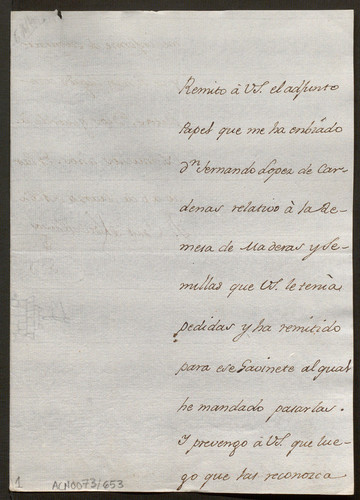 Remito à VS. el adjunto
Papel que me ha enbiado
Dⁿ Fernando Lopez de Car
denas relativo à la Re-
mesa de Maderas y Se-
millas que VS. le tenia
pedidas y ha remitido
para ese Gavinete al qual
he mandado pasarlas.
Y prevengo à VS. que lue-
go que las reconozca
1
ACN0073/653